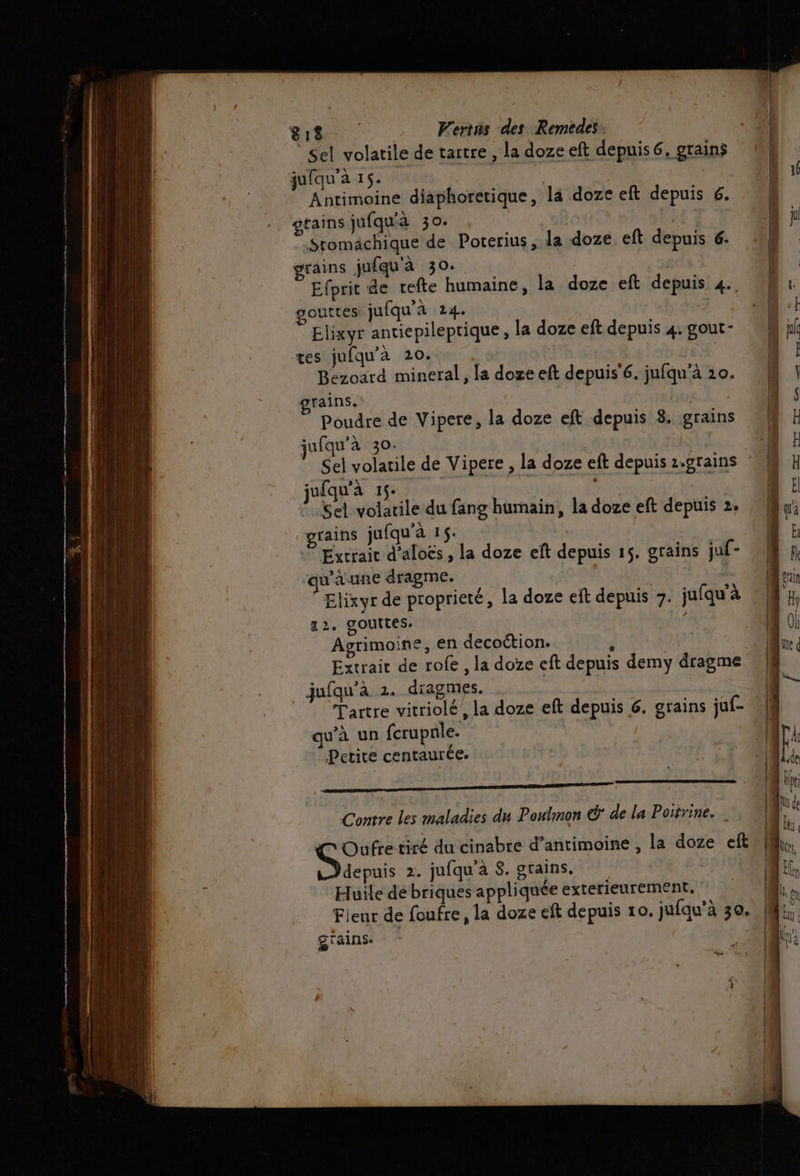 818 Vertus des Remedes.
Sel volatile de tartre, la doze eſt depuis 6. grains
juſqu'à 15.
Antimoine diaphoretique, la doze eſt depuis 6.
grains juſqu'à 30.
Stomachique de Poterius, la doze eſt depuis 6.
grains juſqu'à 30.
Eſprit de teſte humaine, la doze eſt depuis 4.
gouttes juſqu'à 24.
Elixyr antiepileptique, la doze eſt depuis 4. gout-
tes juſqu'à 20.
Bezoard mineral, la doze eſt depuis 6. juſqu'à 20.
grains.
Poudre de Vipere, la doze eſt depuis 8. grains
juſqu'à 30.
Sel volatile de Vipere, la doze eſt depuis 2. grains
juſqu'à 15.
Sel volatile du ſang humain, la doze eſt depuis 2.
grains juſqu'à 15.
Extrait d'aloës, la doze eſt depuis 15. grains juſ-
qu'à une dragme.
Elixyr de proprieté, la doze eſt depuis 7. juſqu'à
12. gouttes.
Agrimoine, en decoction.
Extrait de roſe, la doze eſt depuis demy dragme
juſqu'à 2. dragmes.
Tartre vitriolé, la doze eſt depuis 6. grains juſ-
qu'à un ſcrupule.
Petite centaurée.
Contre les maladies du Poulmon & de la Poitrine.
SOufre tiré du cinabre d'antimoine, la doze eſt
depuis 2. juſqu'à 8. grains.
Huile de briques appliquée exterieurement.
Fleur de ſoufre, la doze eſt depuis 10. juſqu'à 30.
grains.